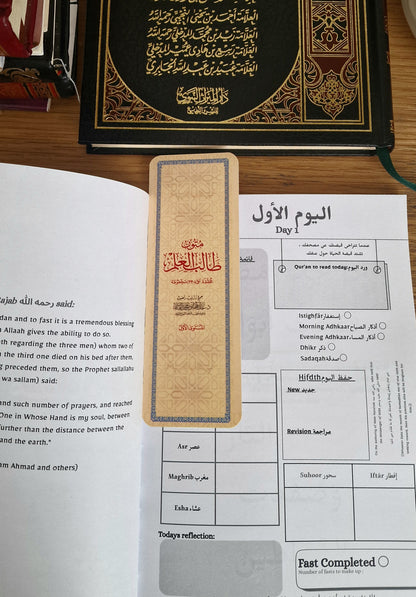 العلامة أحمد بن يحيى النجمي رحمه الله
العلامة زيد بن محمد المدخلي رحمه الله
العلامة ربيع بن هادي المدخلي
العلامة عبيد بن عبد الله الجابري
دار الميراث النبوي
متون
طالب العلم
المستوى الأول
ajab رحمه الله said:
dan and to fast it is a tremendous blessing
n Allaah gives the ability to do so.
th regarding the three men) whom two of
the third one died on his bed after then,
g preceded them, so the Prophet sallallahu
wa sallam) said:
and such number of prayers, and reached
One in Whose Hand is my soul, between
urther than the distance between the
and the earth."
am Ahmad and others)
اليوم الأول
Day 1
عندما تتراخى قبضتك عن مصحفك ،
تشتد قبضة الحياة حول عنقك
Qur'an to read today: ورد اليوم
Istighfār استغفار
Morning Adhkaar أذكار الصباح
Evening Adhkaar أذكار المساء
Dhikr ذكر
Sadaqah صدقة
Hifdth حفظ اليوم
New جديد
Revision مراجعة
Asr عصر
Maghrib مغرب
Esha عشاء
Suhoor سحور
Iftār إفطار
Todays reflection:
Fast Completed
Number of fasts to make up :